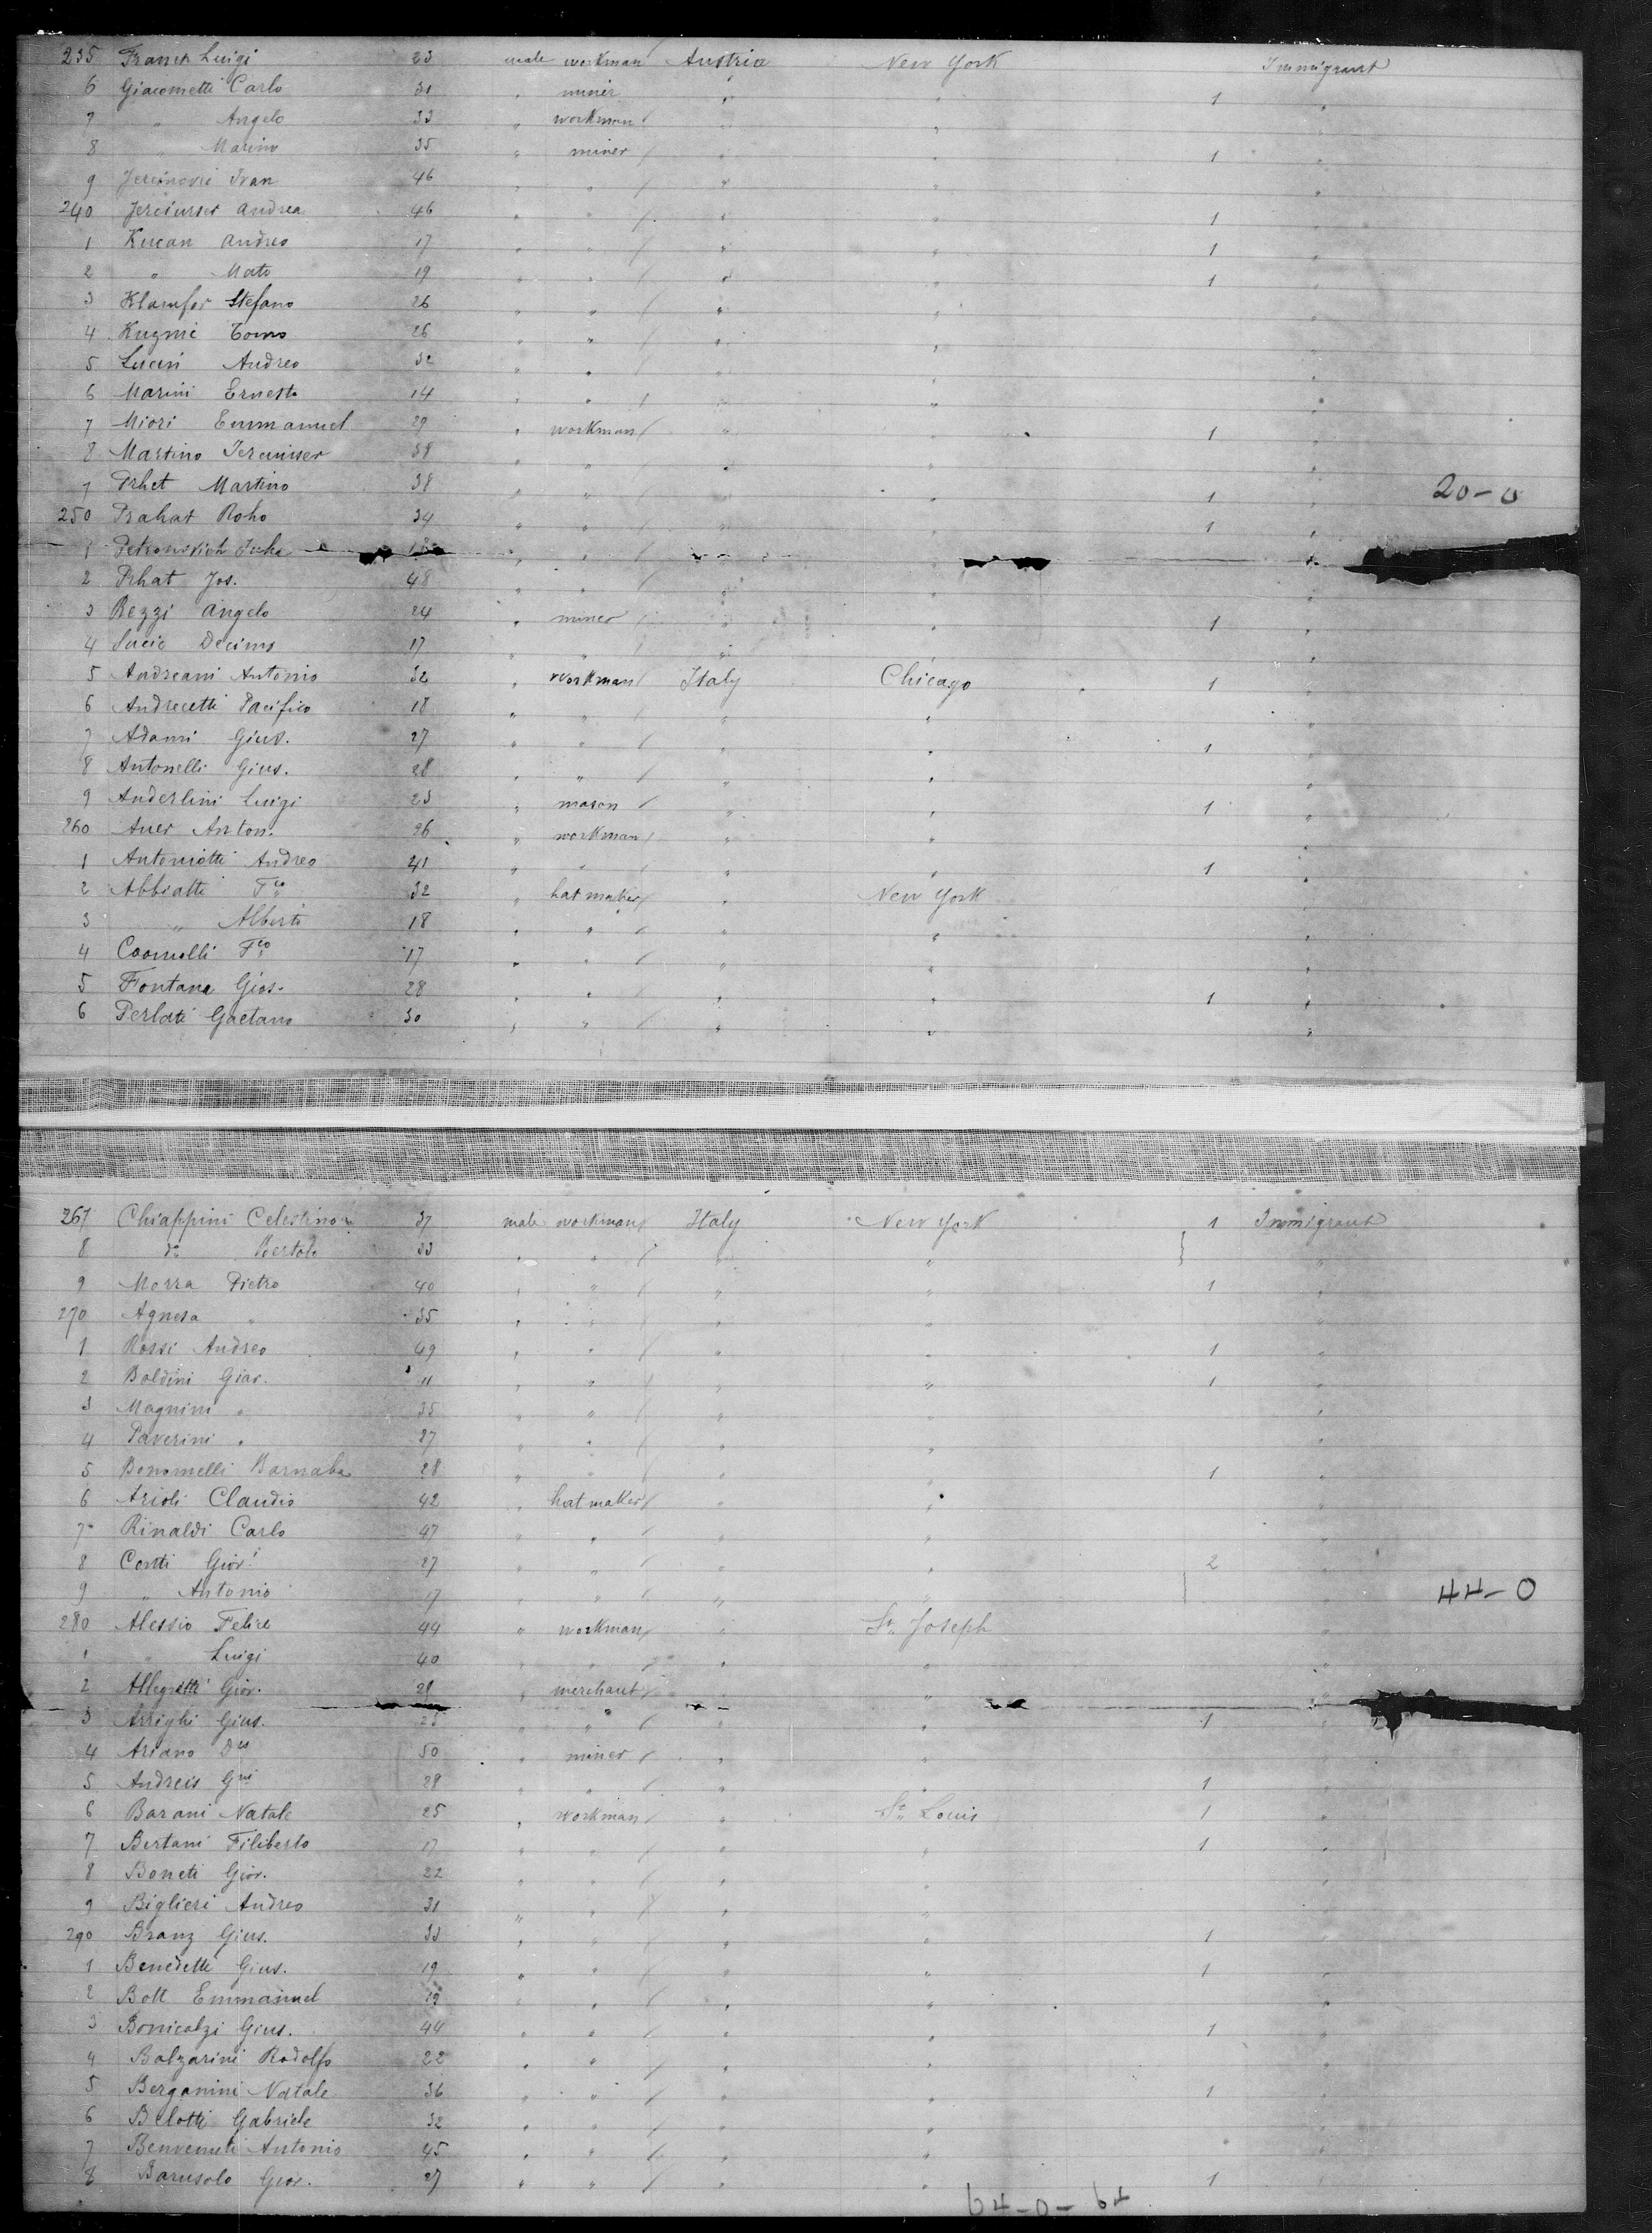 235 Franch Luigi 23 male workman / Austria New York Immigrant
6 Giacometti Carlo 31 " miner " " 1 "
7 " Angelo 33 " workman / " " "
8 " Marino 35 " miner / " " 1 "
9 Ivan 46 " " / " " "
240 Andrea 46 " " / " " 1 "
1 Kucan Andreo 17 " " / " " 1 "
2 " Mato 19 " " / " " 1 "
3 Klamfer Stefano 26 " " / " " "
4 Kuzmic Tomo 26 " " / " " "
5 Andreo 32 " " / " " "
6 Marini Ernesto 14 " " / " " "
7 Miori Emmanuel 29 " workman / " " 1 "
8 Martino 38 " " " " "
7 Prhet Martino 38 " " " " 1 " 20-0
250 Prahat Roho 34 " " / " " 1 "
1 Petronovich " " / "
2 Prhat Jos. 48 " " / " " "
3 Bezzi Angelo 24 " miner / " " 1 "
4 Decimo 17 " " / " " "
5 Andreani Antonio 32 " workman / Italy Chicago 1 "
6 Andreetti Pacifico 18 " " / " " "
7 Adami Gius. 27 " " / " " 1 "
8 Antonelli Gius. 28 " " / " " "
9 Anderlini Luigi 23 " mason / " " 1 "
260 Auer Anton. 26 " workman / " " "
1 Antoniotti Andreo 41 " " / " " 1 "
2 Abbiatti Fco 32 " hat maker / " New York
3 " Alberto 18 " " / " " "
4 Fco 17 " " / " " "
5 Fontana Gios. 28 " " / " " 1 "
6 Perlati Gaetano 30 " " / " " "
267 Chiappini Celestino 37 male workman / Italy New York 1 Immigrant
8 do Bertolo 33 " " / " " "
9 Morra Pietro 40 " " / " " 1 "
270 Agnesa " 35 " " / " " "
1 Rossi Andreo 49 " " / " " 1 "
2 Baldini Giov. 11 " " / " " 1 "
3 Magnini " 35 " " / " " "
4 Paverini " 27 " " / " " "
5 Bonomelli Barnaba 28 " " / " " 1 "
6 Arioli Claudio 42 " hat maker / " " "
7 Rinaldi Carlo 47 " " / " " "
8 Conti Giov. 27 " " / " " 2 "
9 " Antonio 17 " " / " " " 44-0
280 Alessio Felice 44 " workman / " St. Joseph "
1 " Luigi 40 " " / " " "
2 Allegretti Giov. " merchant / " "
3 Arrighi Gius. " " / " " 1 "
4 Ariano Dco 50 " miner / " "
5 Andreis Gni 28 " " / " " 1 "
6 Barani Natale 25 " workman / " St. Louis 1 "
7 Bertani Filiberto 17 " " / " " 1 "
8 Boneti Giov. 22 " " / " " "
9 Biglieri Andreo 31 " " / " " "
290 Branz Gius. 33 " " / " " 1 "
1 Benedetti Gius. 19 " " / " " 1 "
2 Bott Emmanuel 19 " " / " " "
3 Bonicalzi Gius. 44 " " / " " 1 "
4 Balzarini Rodolfo 22 " " / " " "
5 Berganini Natale 36 " " / " " 1 "
6 Belotti Gabriele 32 " " / " " "
7 Benvenuti Antonio 45 " " / " " "
8 Barusolo Giov. 27 " " / " " 1 "
64-0-64